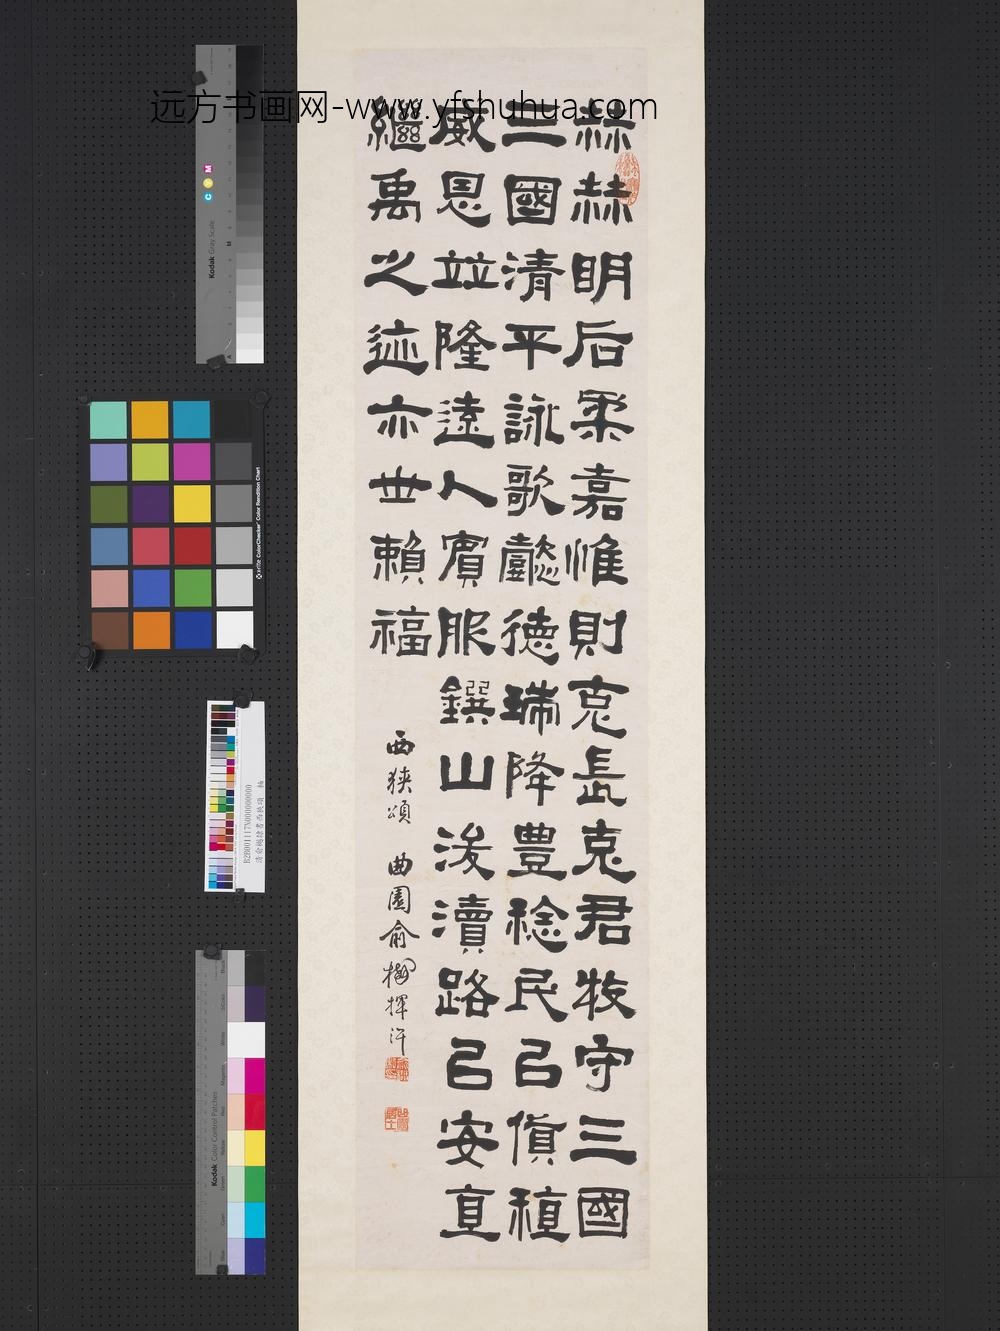 远方书画网-www.yfshuhua.com
赫赫明后柔嘉惟則克長克君牧守三國
三國清平詠歌懿德瑞降豊稔民㠯貨稙
威恩竝隆遠人賓服鐉山浚瀆路㠯安直
繼禹之迹亦世賴福
西狹頌 曲園俞樾揮汗
Kodak Gray Scale
C Y M
x·rite ColorChecker Color Rendition Chart
B2B001117N000000000
清俞樾隸書西狹頌 軸
Kodak Color Control Patches